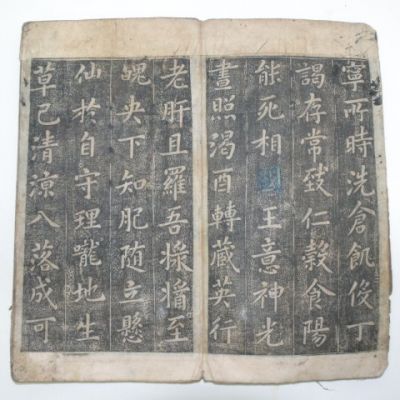 寧所時洗倉飢俊丁
謁存常致仁穀食陽
能死相王意神光
晝照渴酉轉藏英行
老肝且羅吾祿獨至
魄央下知肥随立懸
仙於自守理嚨地生
草已清涼八落成可